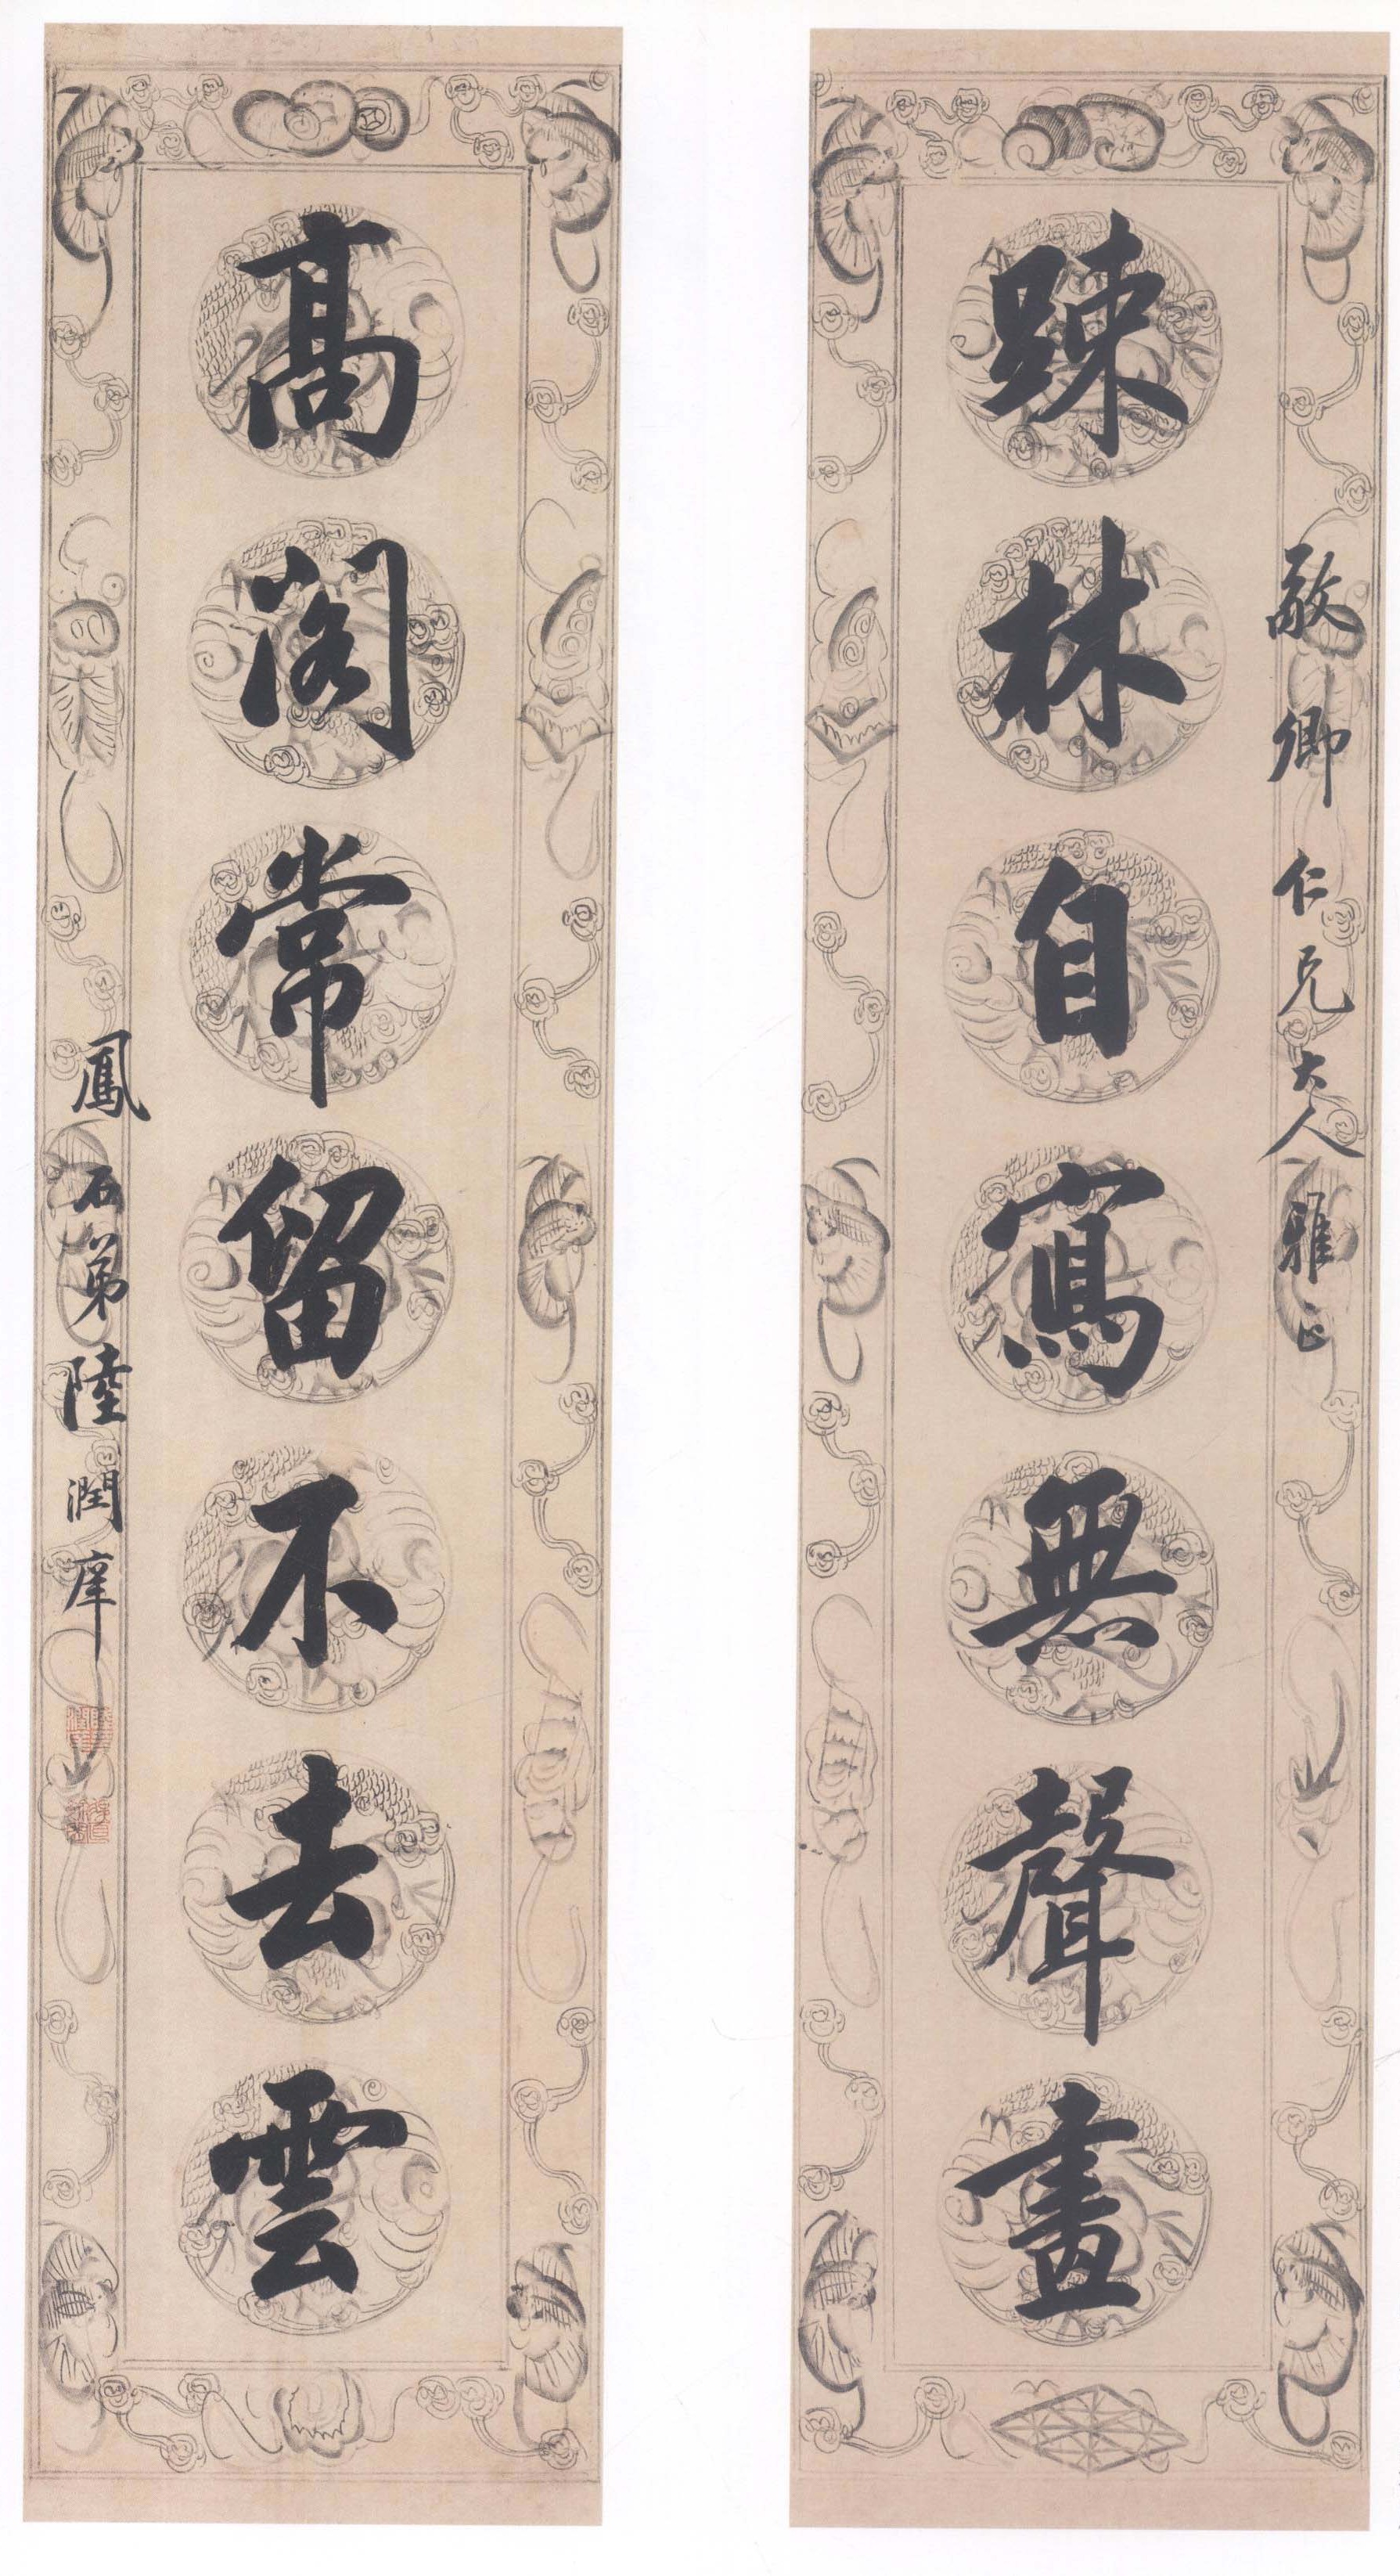 敬卿仁兄大人雅正
踈林自寫無聲畫
高阁常留不去雲
鳳石弟陸潤庠